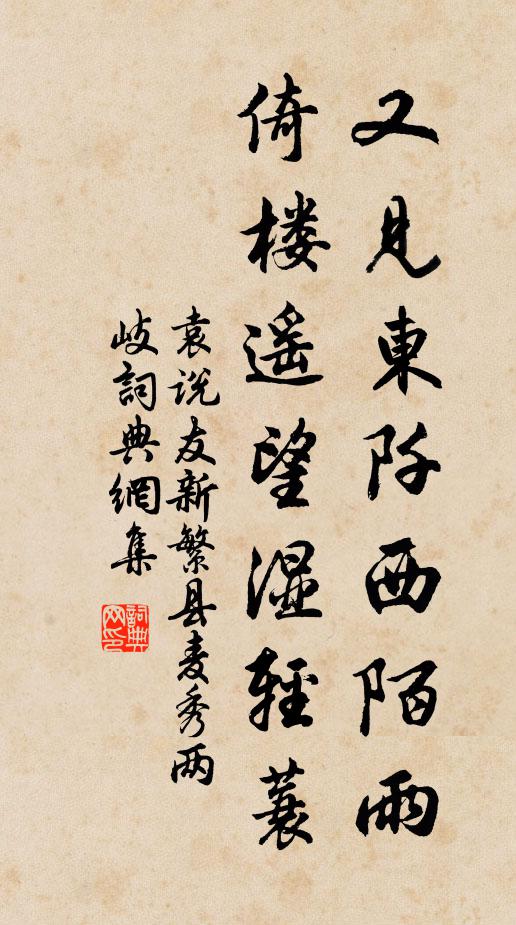 又見東阡西陌雨
倚楼遥望湿輕蓑
袁说友新繁县麦秀两
岐詞典網集
詞典网印